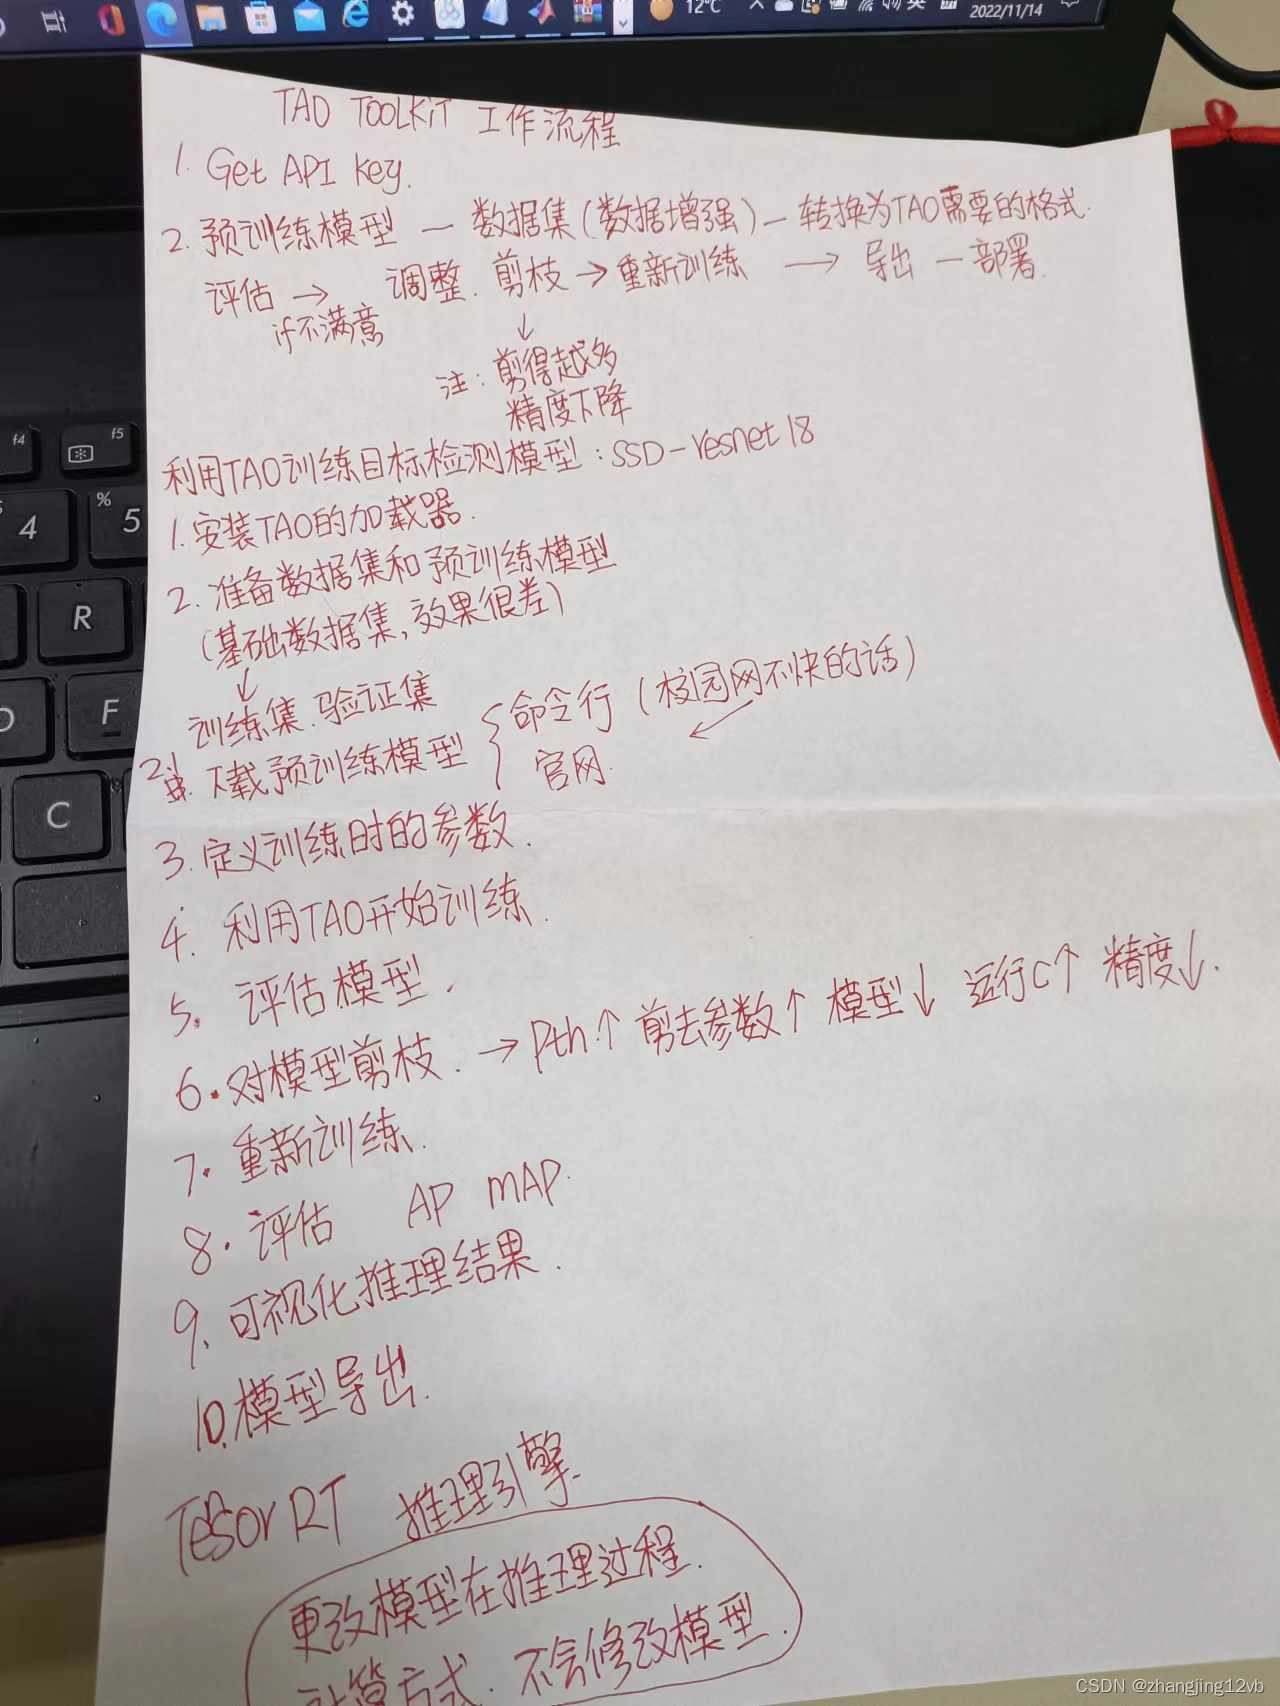 12°C
2022/11/14
TAO TOOLKIT 工作流程
1. Get API key.
2. 预训练模型 — 数据集(数据增强) — 转换为TAO需要的格式.
评估 → 调整. 剪枝 → 重新训练 → 导出 — 部署.
if不满意
↓
注: 剪得越多
精度下降
利用TAO训练目标检测模型: SSD-resnet 18
1. 安装TAO的加载器.
2. 准备数据集和预训练模型
(基础数据集, 效果很差)
↓
训练集. 验证集
2.1 下载预训练模型 { 命令行 (校园网不快的话)
官网.
3. 定义训练时的参数.
4. 利用TAO开始训练.
5. 评估模型.
6. 对模型剪枝. → Pth.↑ 剪去参数↑ 模型↓ 运行C↑ 精度↓.
7. 重新训练.
8. 评估 AP mAP.
9. 可视化推理结果.
10. 模型导出.
TensorRT 推理引擎.
更改模型在推理过程.
计算方式. 不会修改模型.
f4
f5
4
%
5
R
F
C
CSDN @zhangjing12vb